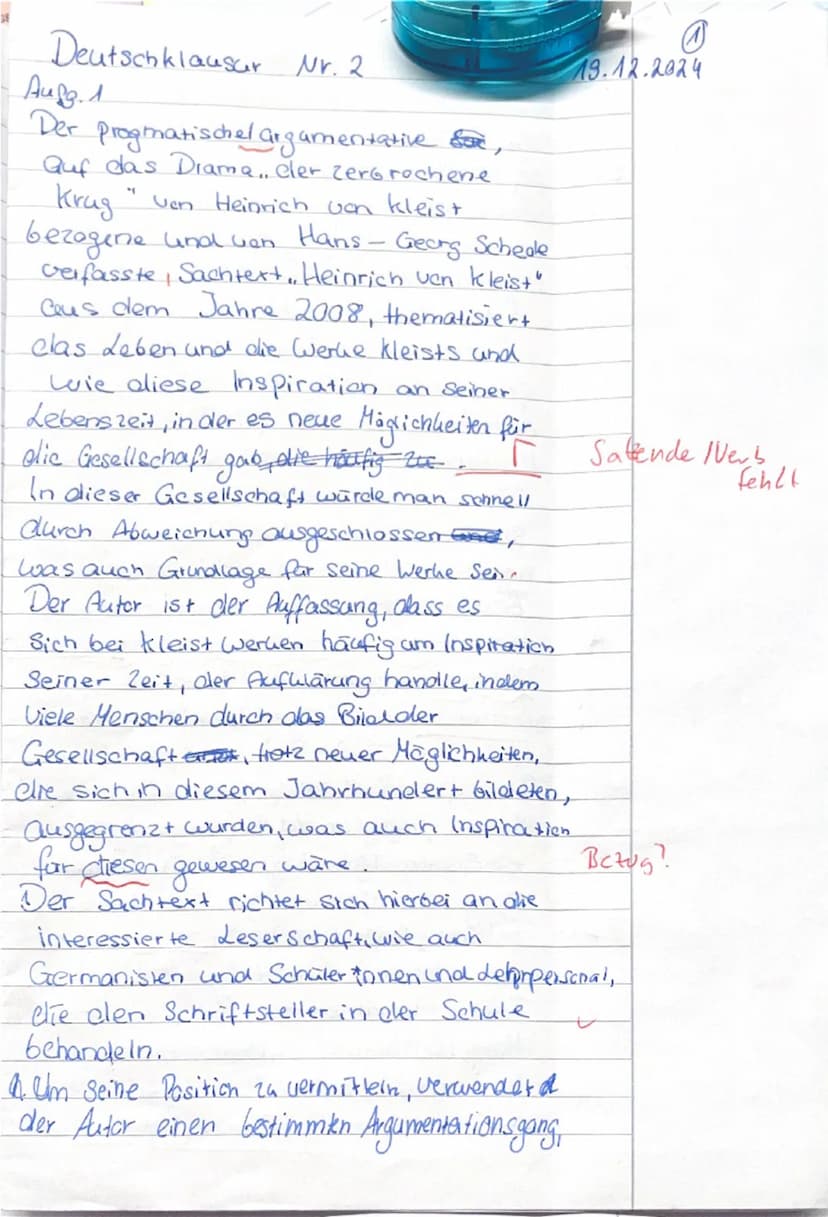 ①
Deutschklausur Nr. 2 19.12.2024
Aufg. 1
Der pragmatische/argumentative ,
auf das Drama „der zerbrochene
Krug" von Heinrich von Kleist
bezogene und von Hans-Georg Schede
verfasste, Sachtext „Heinrich von Kleist"
aus dem Jahre 2008, thematisiert
das Leben und die Werke Kleists und
wie diese Inspiration an seiner
Lebenszeit, in der es neue Möglichkeiten für
die Gesellschaft gab, die häufig zu . Γ Satzende / Verb
fehlt
In dieser Gesellschaft würde man schnell
durch Abweichung ausgeschlossen ,
was auch Grundlage für seine Werke sei.
Der Autor ist der Auffassung, dass es
sich bei Kleist Werken häufig um Inspiration
seiner Zeit, der Aufklärung handle, indem
viele Menschen durch das Bild der
Gesellschaft , trotz neuer Möglichkeiten,
die sich in diesem Jahrhundert bildeten,
ausgegrenzt wurden, was auch Inspiration
für diesen gewesen wäre. Bezug?
Der Sachtext richtet sich hierbei an die
interessierte Leserschaft, wie auch
Germanisten und Schüler*innen und Lehrpersonal,
die den Schriftsteller in der Schule
behandeln.
Um seine Position zu vermitteln, verwendet
der Autor einen bestimmten Argumentationsgang,